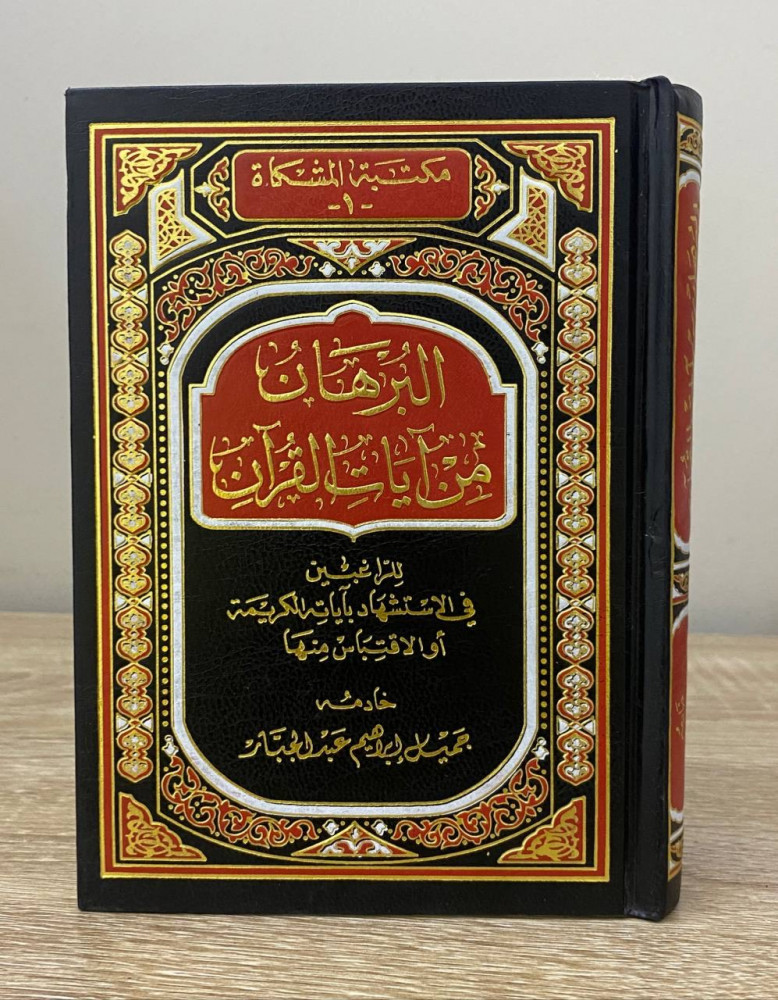 مكتبة المشكاة
-١-
البُرْهَانُ
مِنْ آيَاتِ القُرْآنِ
للراغبين
في الاستشهاد بآياته الكريمة
أو الاقتباس منها
خادمه
جميل إبراهيم عبد الجبار